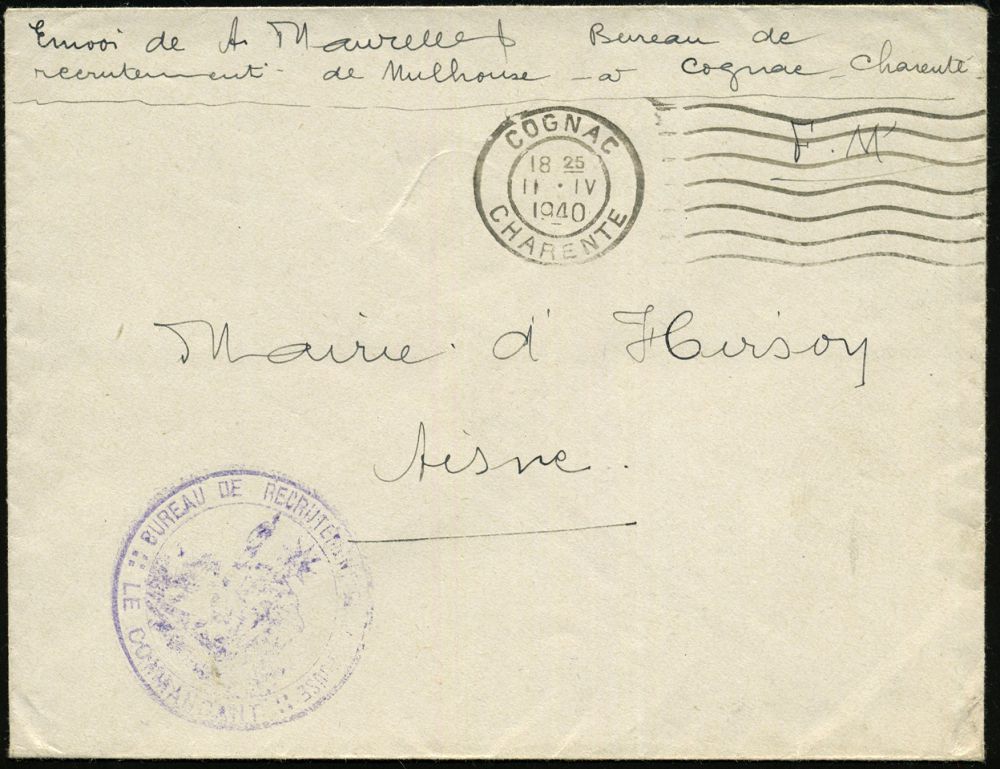 Envoi de A. Maurelle Bureau de
recrutement - de Mulhouse - à Cognac - Charente
F. M
COGNAC
18 25
11 · IV
1940
CHARENTE
Mairie d' Hirson
Aisne.
BUREAU DE RECRUTEMENT
LE COMMANDANT